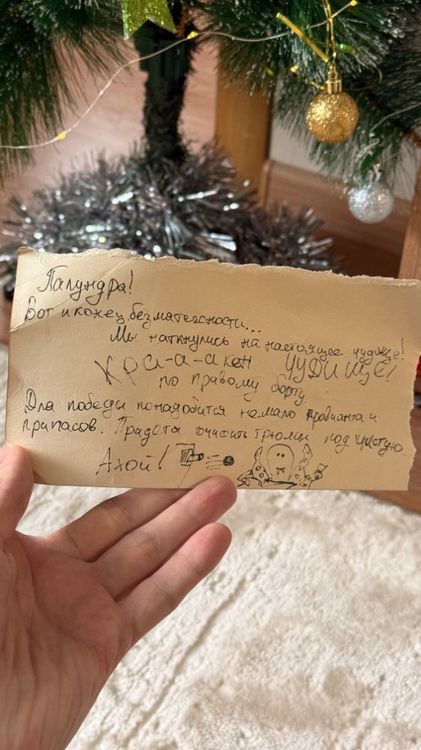 Палундра!
Вот и конец безмятежности...
Мы наткнулись на настоящее чудище!
Кра-а-акен ЧУДИЩЕ!
по правому борту
Для победы понадобится немало провианта и
припасов. Придётся очистить трюмы под чистую
Ахой!